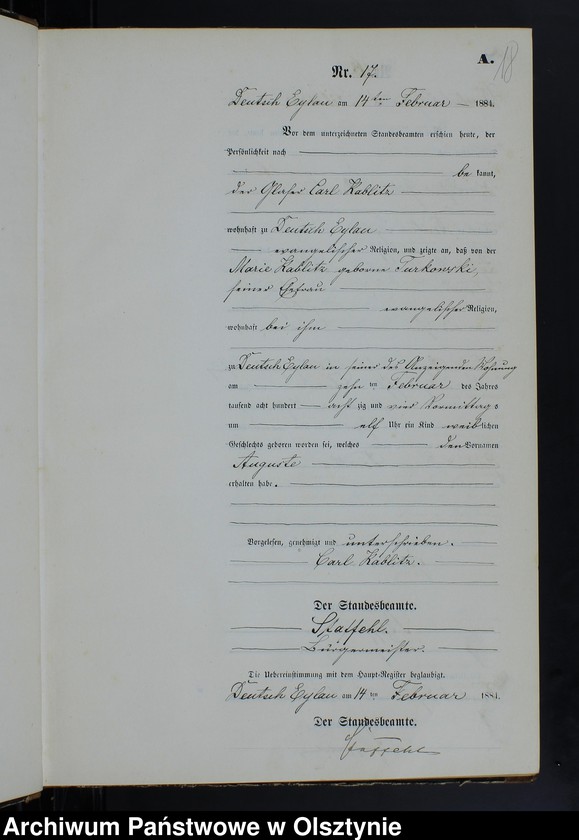 A.
18
Nr. 17.
Deutsch Eylau am 14ten Februar 1884.
Vor dem unterzeichneten Standesbeamten erschien heute, der
Persönlichkeit nach
be kannt,
der Glaser Carl Kablitz
wohnhaft zu Deutsch Eylau
evangelischer Religion, und zeigte an, daß von der
Marie Kablitz geborne Turkowski,
seiner Ehefrau
evangelischer Religion,
wohnhaft bei ihm
zu Deutsch Eylau in seiner des Anzeigenden Wohnung
am zehn ten Februar des Jahres
tausend acht hundert acht zig und vier Vormittags
um elf Uhr ein Kind weiblichen
Geschlechts geboren worden sei, welches den Vornamen
Auguste
erhalten habe.
Vorgelesen, genehmigt und unterschrieben.
Carl Kablitz.
Der Standesbeamte.
Staffehl.
Bürgermeister.
Die Uebereinstimmung mit dem Haupt-Register beglaubigt.
Deutsch Eylau am 14 ten Februar 1884.
Der Standesbeamte.
Staffehl
Archiwum Państwowe w Olsztynie